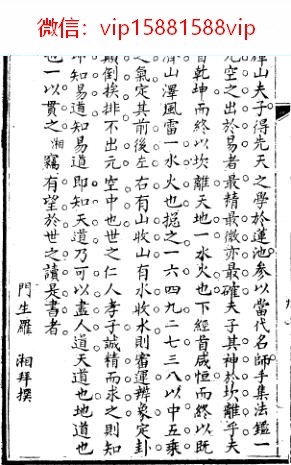 微信：vip15881588vip
山夫子得先天之學於蓮池參以當代名師手集法鑑一
元空之出於易者最精最微亦最確夫子其神於坎離乎夫
首乾坤而終以坎離天地一水火也下經首咸恒而終以既
濟山澤風雷一水火也挹之一六四九二七三八以中五乘
之氣定其前後左右有山收山有水收水則審運辨象定卦
顛倒挨排不出元空中也世之仁人孝子誠精而求之則知
即知易道知易道即知天道乃可以盡人道天道也地道也
也一以貫之湘竊有望於世之讀是書者
門生羅湘拜撰